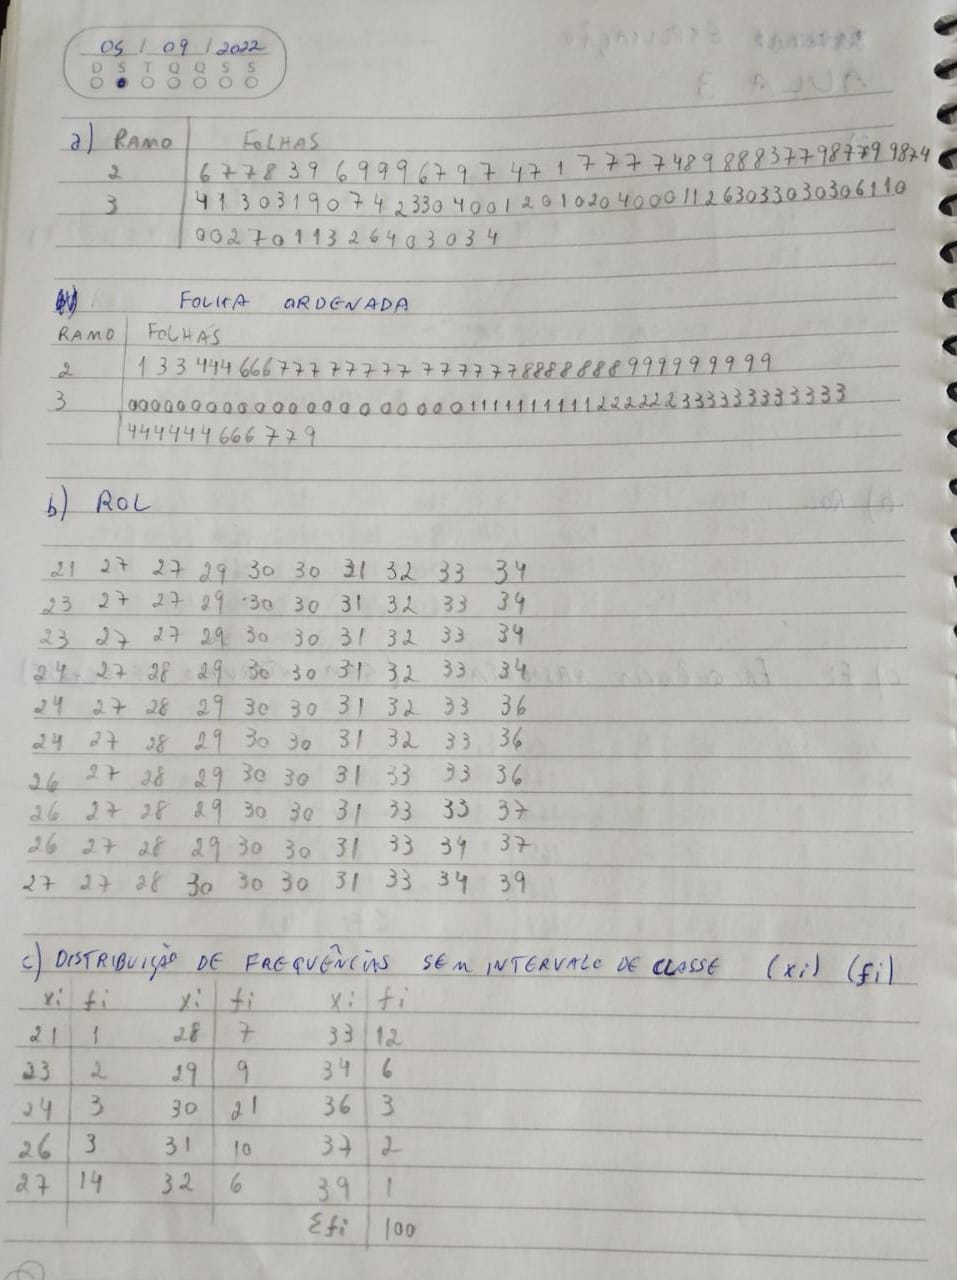 05 / 09 / 2022
D S T Q Q S S
a) RAMO FOLHAS
2 6 7 7 8 3 9 6 9 9 9 6 7 9 7 4 7 1 7 7 7 7 4 8 9 8 8 8 3 7 7 9 8 7 7 9 9 8 7 4
3 4 1 3 0 3 1 9 0 7 4 2 3 3 0 4 0 0 1 2 0 1 0 2 0 4 0 0 0 1 1 2 6 3 0 3 3 0 3 0 3 0 6 1 1 0
0 0 2 7 0 1 1 3 2 6 4 0 3 0 3 4
FOLHA ORDENADA
RAMO FOLHAS
2 1 3 3 4 4 4 6 6 6 7 7 7 7 7 7 7 7 7 7 7 7 7 7 8 8 8 8 8 8 8 9 9 9 9 9 9 9 9 9
3 0 0 0 0 0 0 0 0 0 0 0 0 0 0 0 0 0 0 0 0 0 1 1 1 1 1 1 1 1 1 1 2 2 2 2 2 2 3 3 3 3 3 3 3 3 3 3 3 3
4 4 4 4 4 4 6 6 6 7 7 9
b) ROL
21 27 27 29 30 30 31 32 33 34
23 27 27 29 30 30 31 32 33 34
23 27 27 29 30 30 31 32 33 34
24 27 28 29 30 30 31 32 33 34
24 27 28 29 30 30 31 32 33 36
24 27 28 29 30 30 31 32 33 36
26 27 28 29 30 30 31 33 33 36
26 27 28 29 30 30 31 33 33 37
26 27 28 29 30 30 31 33 34 37
27 27 28 30 30 30 31 33 34 39
c) DISTRIBUIÇÃO DE FREQUÊNCIAS SEM INTERVALO DE CLASSE (xi) (fi)
xi fi xi fi xi fi
21 1 28 7 33 12
23 2 29 9 34 6
24 3 30 21 36 3
26 3 31 10 37 2
27 14 32 6 39 1
Σfi 100